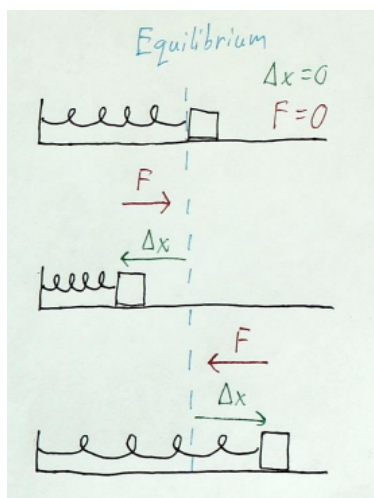 Equilibrium
Δx=0
F=0
F
Δx
F
Δx